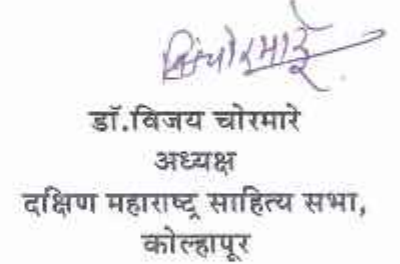 वि.चोरमारे
डॉ.विजय चोरमारे
अध्यक्ष
दक्षिण महाराष्ट्र साहित्य सभा,
कोल्हापूर